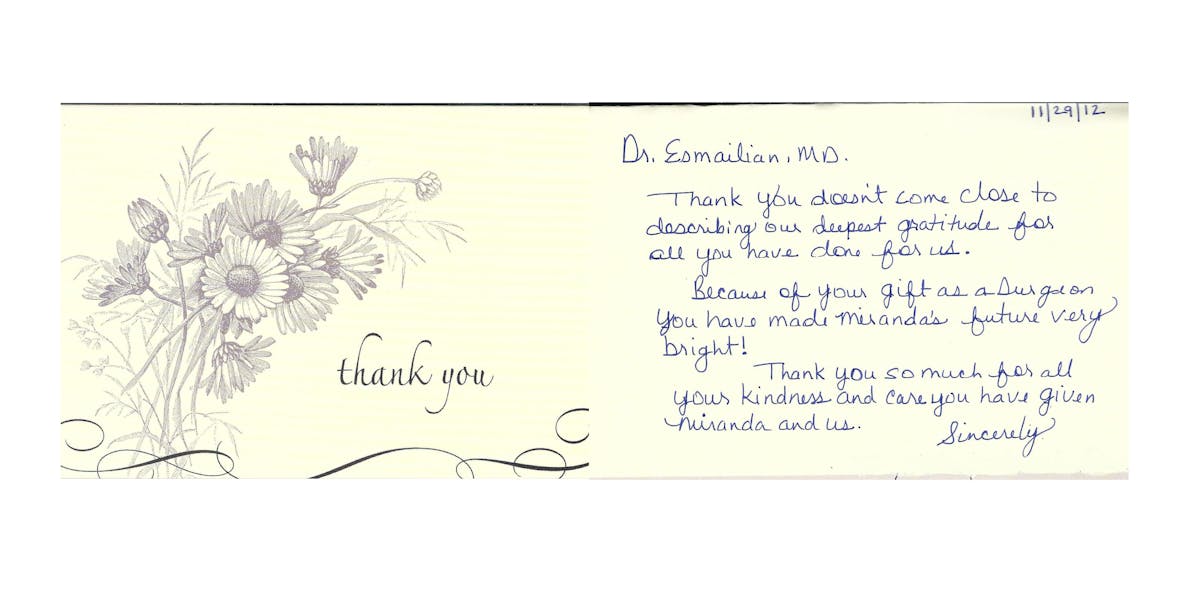 thank you
11/29/12
Dr. Esmailian, MD.
Thank you doesn't come close to
describing our deepest gratitude for
all you have done for us.
Because of your gift as a Surgeon
you have made Miranda's future very
bright!
Thank you so much for all
your kindness and care you have given
Miranda and us.
Sincerely